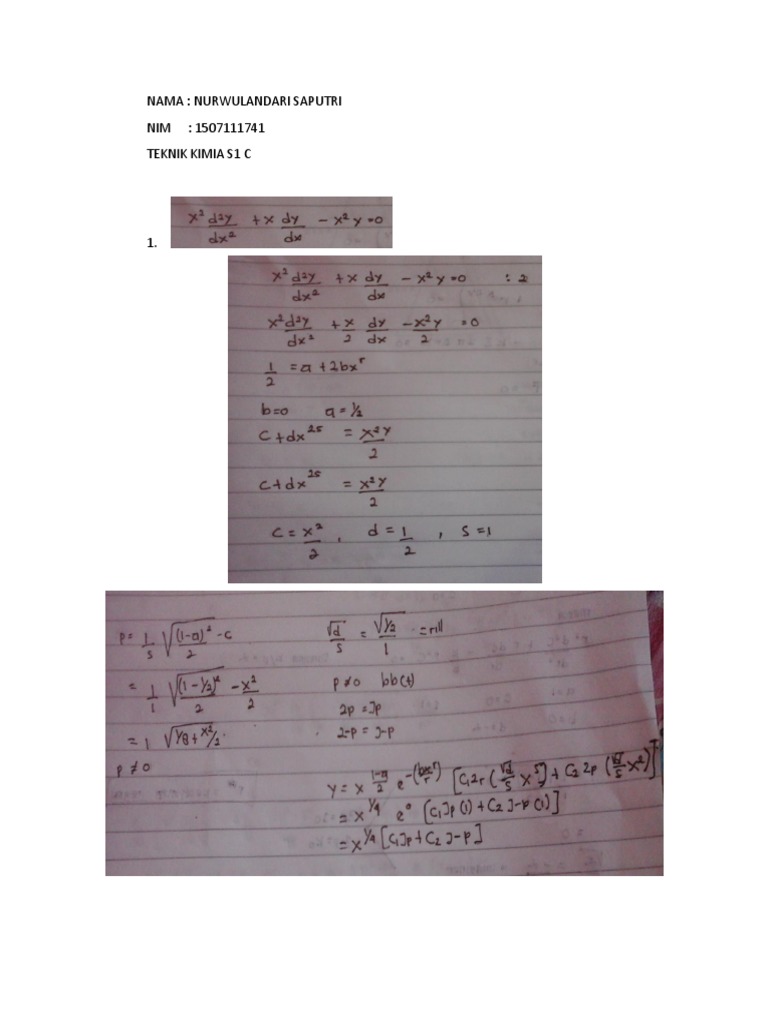 NAMA : NURWULANDARI SAPUTRI
NIM : 1507111741
TEKNIK KIMIA S1 C
1. x² d²y/dx² + x dy/dx - x²y = 0
x² d²y/dx² + x dy/dx - x²y = 0 : 2
x² d²y/dx² + x/2 dy/dx - x²y/2 = 0
1/2 = a + 2bxʳ
b=0 a = 1/2
c + dx²ˢ = x²y/2
c + dx²ˢ = x²y/2
c = x²/2 , d = 1/2 , s = 1
p = 1/s √((1-a)²/2 - c
= 1/1 √((1-1/2)²/2 - x²/2
= 1 √(1/8 + x²/2
p ≠ 0
√d/s = √(1/2)/1 = rill
p ≠ 0 bb(t)
2p = Jp
2-p = J-p
y = x^((1-a)/2) e^-(bxʳ/r) [C₁2r (√d/s xˢ] + C₂ 2p (√d/s x²)]
= x^(1/4) e⁰ [C₁Jp (1) + C₂ J-p (1)]
= x^(1/4) [C₁Jp + C₂ J-p]